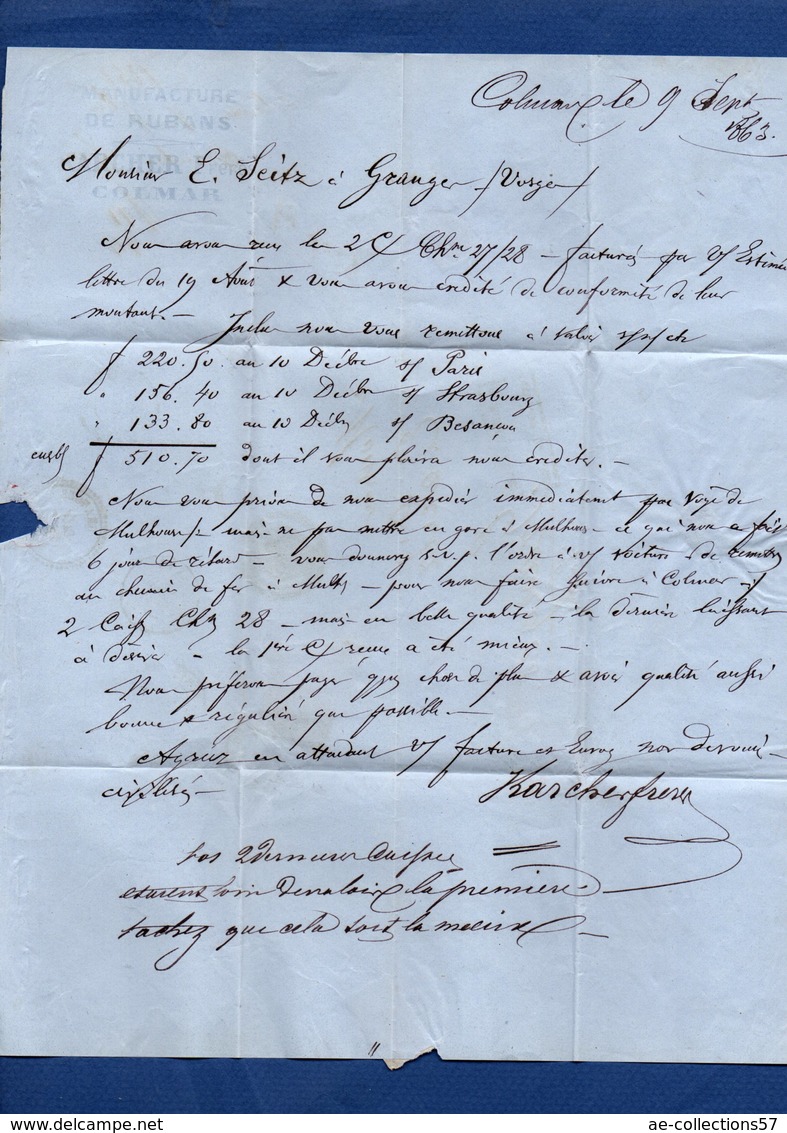 MANUFACTURE
DE RUBANS
KARCHER Frères
COLMAR
Colmar le 9 Sept
1863.
Monsieur E. Seitz à Granges /Vosges/
Nous avons reçu les 2 C/ Chne 27/28 – facturés par v/ Estimée
lettre du 19 Août & vous avons crédité de conformité de leur
montant. – Inclus nous vous remettons
f 220.50 au 10 Décbre s/ Paris
" 156.40 au 10 Décbre s/ Strasbourg
" 133.80 au 10 Décb s/ Besançon
f 510.70 dont il vous plaira nous créditer. –
Nous vous prions de nous expédier immédiatemt par voye de
Mulhouse mais ne pas mettre en gare à Mulhouse – ce qui nous a fait
6 jours de retard – vous donnerez s.v.p. l'ordre à v/ voiturier de remettre
au chemin de fer à Mulh – pour nous faire suivre à Colmar
2 Caiss Chne 28 – mais en belle qualité – la dernière laissant
à désirer – la 1ère C/ reçue a été mieux. –
Nous préférons payer qqes chose de plus & avoir qualité aussi
bonne & régulière que possible. –
Agréez en attendant v/ facture et Envoy nos dévouées
civilités –
Karcher frères
Les 2 dernieres Caisses
etaient loin de valoir la première –
tachez que cela soit la meme –
ae-collections57